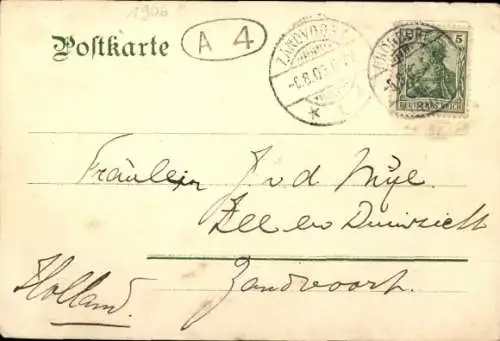 1906
Postkarte
A 4
ZANDVOORT
5
DEUTSCHES REICH
Fräulein J. v. d. Mije.
Zee en Duinzicht
Zandvoort.
Holland.